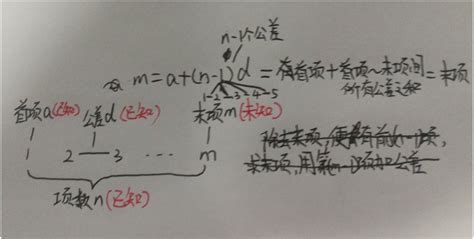 n-1个公差
m=a+(n-1)d=有首项+首项~末项间所有公差之和=末项
1-2-3-4-5
首项a(已知) 公差d(已知) 末项m(未知)
1 2—3 … m
项数n(已知)